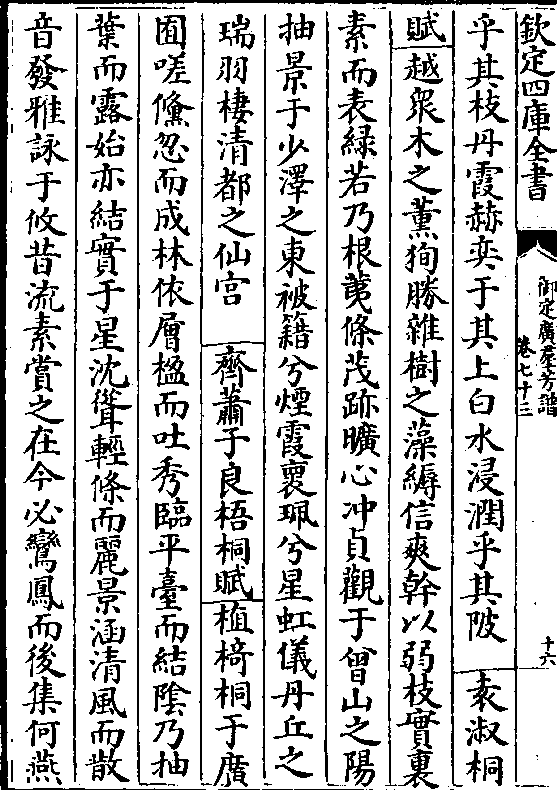 欽定四庫全書
御定廣羣芳譜
卷七十三
十六
乎其枝丹霞赫奕于其上白水浸潤乎其陂　袁淑桐
賦越衆木之薰徇勝雜樹之藻縟信爽幹以弱枝實裏
素而表綠若乃根荑條茂跡曠心冲貞觀于曾山之陽
抽景于少澤之東被籍兮煙霞裛珮兮星虹儀丹丘之
瑞羽棲清都之仙宮　齊蕭子良梧桐賦植椅桐于廣
囿嗟儵忽而成林依層楹而吐秀臨平臺而結陰乃抽
葉而露始亦結實于星沈聳輕條而麗景涵清風而散
音發雅詠于攸昔流素賞之在今必鸞鳳而後集何燕